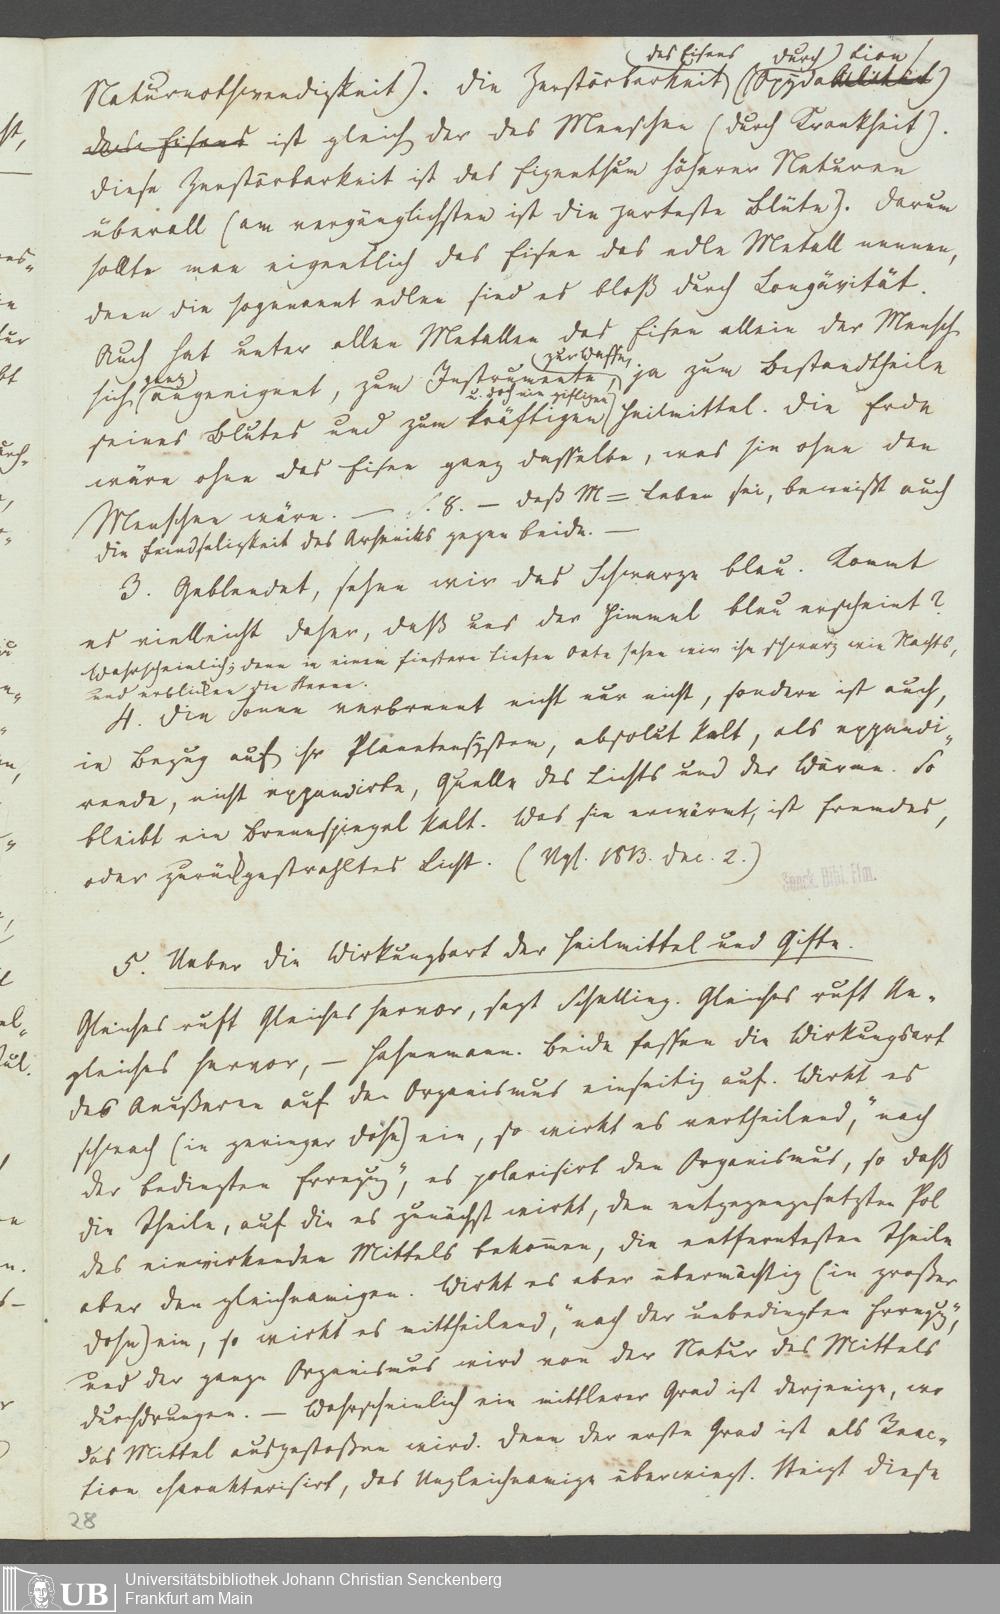 des Eisens durch tion
Naturnothwendigkeit). Die Zerstörbarkeit (Oxyda
des Eisens ist gleich der des Menschen (durch Krankheit).
Diese Zerstörbarkeit ist das Eigenthum höherer Naturen
überall (am vergänglichsten ist die zarteste Blüte). Darum
sollte man eigentlich das Eisen das edle Metall nennen,
denn die sogenannt edlen sind es bloß durch Longävität.
Auch hat unter allen Metallen das Eisen allein der Mensch
ganz zur Waffe,
sich angeeignet, zum Instrumente, ja zum Bestandtheile
u. doch nie giftigen
seines Blutes und zum kräftigen Heilmittel. Die Erde
wäre ohne das Eisen ganz dasselbe, was sie ohne den
Menschen wäre. — 8. — daß M = Leben sei, beweißt auch
die Feindseligkeit des Arseniks gegen beide. —
3. Geblendet, sehen wir das Schwarze blau. Kommt
es vielleicht daher, daß uns der Himmel blau erscheint?
Wahrscheinlich; denn in einem finstern tiefen Orte sehen wir ihn schwarz wie Nachts,
und erblicken die Sterne.
4. Die Sonne verbrennt nicht nur nicht, sondern ist auch,
in Bezug auf ihr Planetensystem, absolut kalt, als expandi-
rende, nicht expandirte, Quelle des Lichts und der Wärme. So
bleibt ein Brennspiegel kalt. Was sie erwärmt, ist fremdes,
oder zurückgestrahltes Licht. (Vgl. 1813. Dec. 2.)
Senck. Bibl. Ffm.
5. Ueber die Wirkungsart der Heilmittel und Gifte.
Gleiches ruft Gleiches hervor, sagt Schelling. Gleiches ruft Un-
gleiches hervor, — Hahnemann. Beide fassen die Wirkungsart
des Äußeren auf den Organismus einseitig auf. Wirkt es
schwach (in geringer Dose) ein, so wirkt es vertheilend, "nach
der bedingten Erregung", es polarisirt den Organismus, so daß
die Theile, auf die es zunächst wirkt, den entgegengesetzten Pol
des einwirkenden Mittels bekommen, die entferntesten Theile
aber den gleichnamigen. Wirkt es aber übermächtig (in großer
Dose) ein, so wirkt es mittheilend, "nach der unbedingten Erregung",
und der ganze Organismus wird von der Natur des Mittels
durchdrungen. — Wahrscheinlich ein mittlerer Grad ist derjenige, wo
das Mittel ausgestoßen wird. Denn der erste Grad ist als Reac-
tion charakterisirt, das Ungleichnamige überwiegt. Steigt diese
28
UB
Universitätsbibliothek Johann Christian Senckenberg
Frankfurt am Main